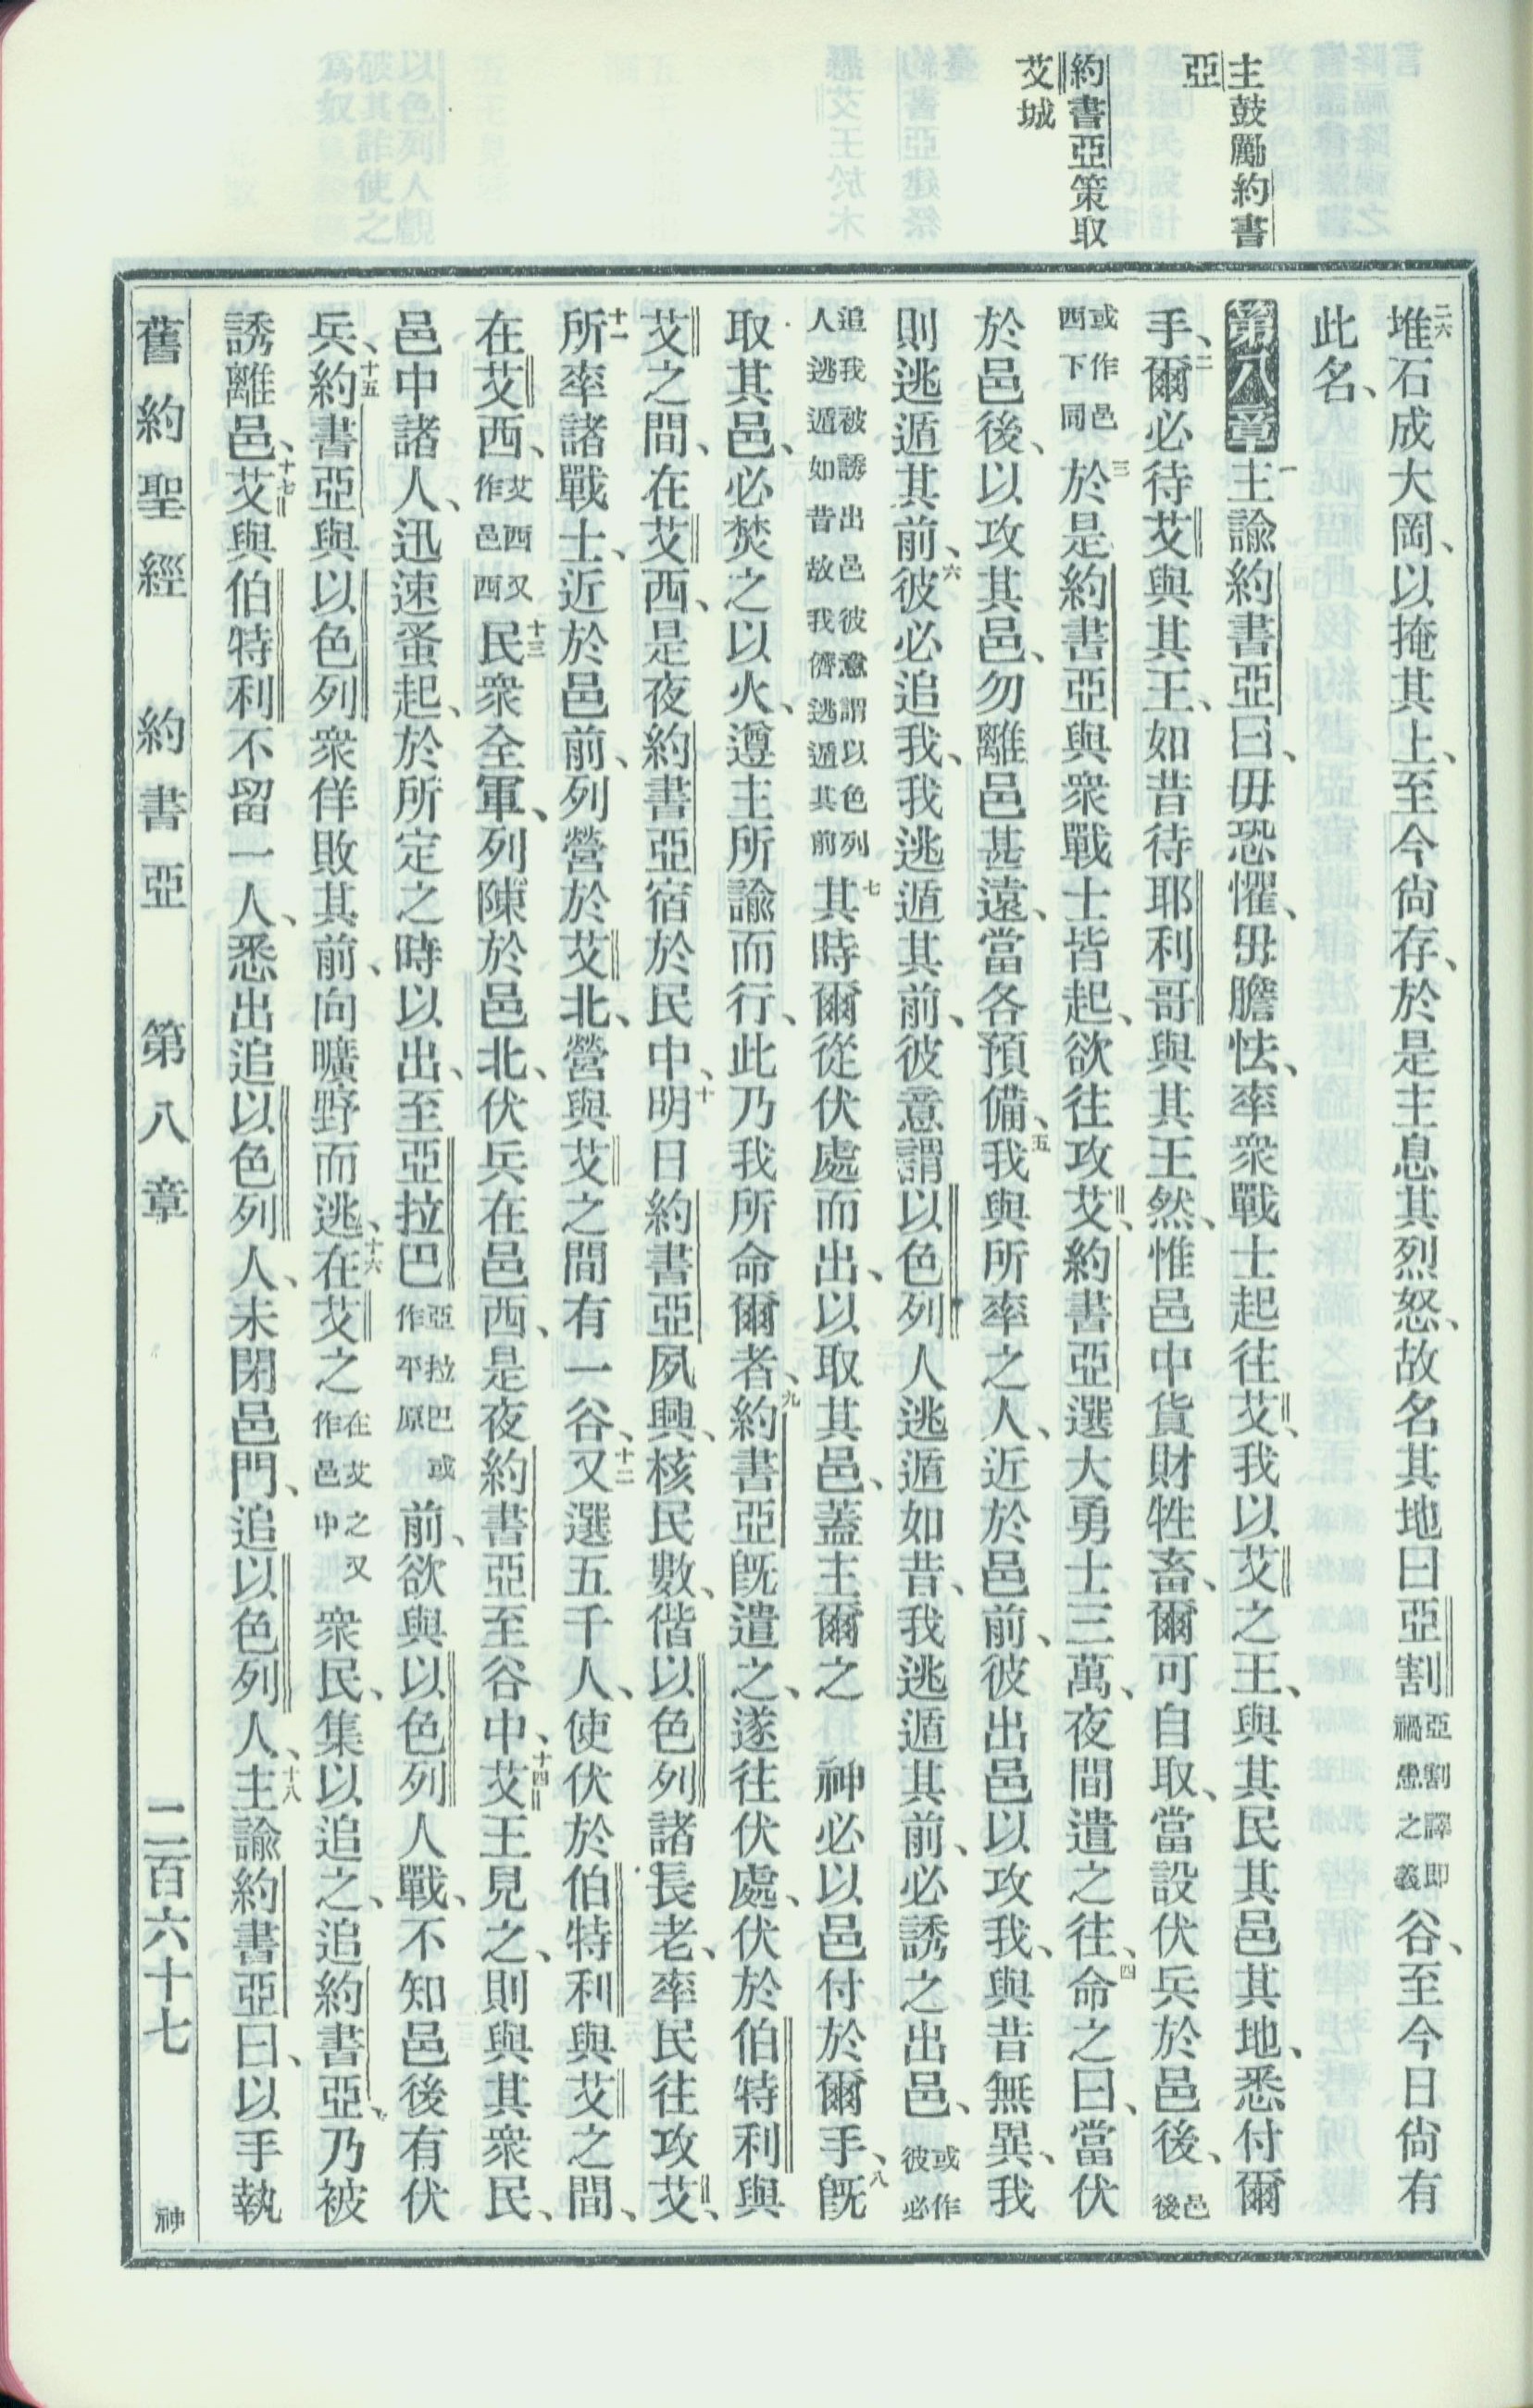 主鼓厲約書
亞
約書亞策取
艾城
二六堆石成大岡、以掩其上、至今尙存、於是主息其烈怒、故名其地曰亞割亞割譯卽禍患之義谷、至今日尙有
此名、
第八章一主諭約書亞曰、毋恐懼、毋膽怯、率衆戰士起往艾、我以艾之王、與其民其邑其地、悉付爾
手、二爾必待艾與其王、如昔待耶利哥與其王然、惟邑中貨財牲畜、爾可自取、當設伏兵於邑後、邑後
或作邑西下同三於是約書亞與衆戰士皆起、欲往攻艾、約書亞選大勇士三萬、夜間遣之往、四命之曰、當伏
於邑後、以攻其邑、勿離邑甚遠、當各預備、五我與所率之人、近於邑前、彼出邑以攻我、與昔無異、我
則逃遁其前、六彼必追我、我逃遁其前、彼意謂以色列人逃遁如昔、我逃遁其前、必誘之出邑、或作彼必
追我被誘出邑彼意謂以色列人逃遁如昔故我儕逃遁其前七其時爾從伏處而出、以取其邑、蓋主爾之 神必以邑付於爾手、八旣
取其邑、必焚之以火、遵主所諭而行、此乃我所命爾者、九約書亞旣遣之、遂往伏處、伏於伯特利與
艾之間、在艾西、是夜約書亞宿於民中、十明日約書亞夙興、核民數、偕以色列諸長老、率民往攻艾、
十一所率諸戰士、近於邑前、列營於艾北、營與艾之間有一谷、十二又選五千人、使伏於伯特利與艾之間、
在艾西、艾西又作邑西十三民衆全軍、列陳於邑北、伏兵在邑西、是夜約書亞至谷中、十四艾王見之、則與其衆民、
邑中諸人、迅速蚤起、於所定之時以出、至亞拉巴亞拉巴或作平原前、欲與以色列人戰、不知邑後有伏
兵、十五約書亞與以色列衆佯敗其前、向曠野而逃、十六在艾之在艾之又作邑中衆民、集以追之、追約書亞、乃被
誘離邑、十七艾與伯特利不留一人、悉出追以色列人、未閉邑門、追以色列人、十八主諭約書亞曰、以手執
舊約聖經 約書亞 第八章 二百六十七 神